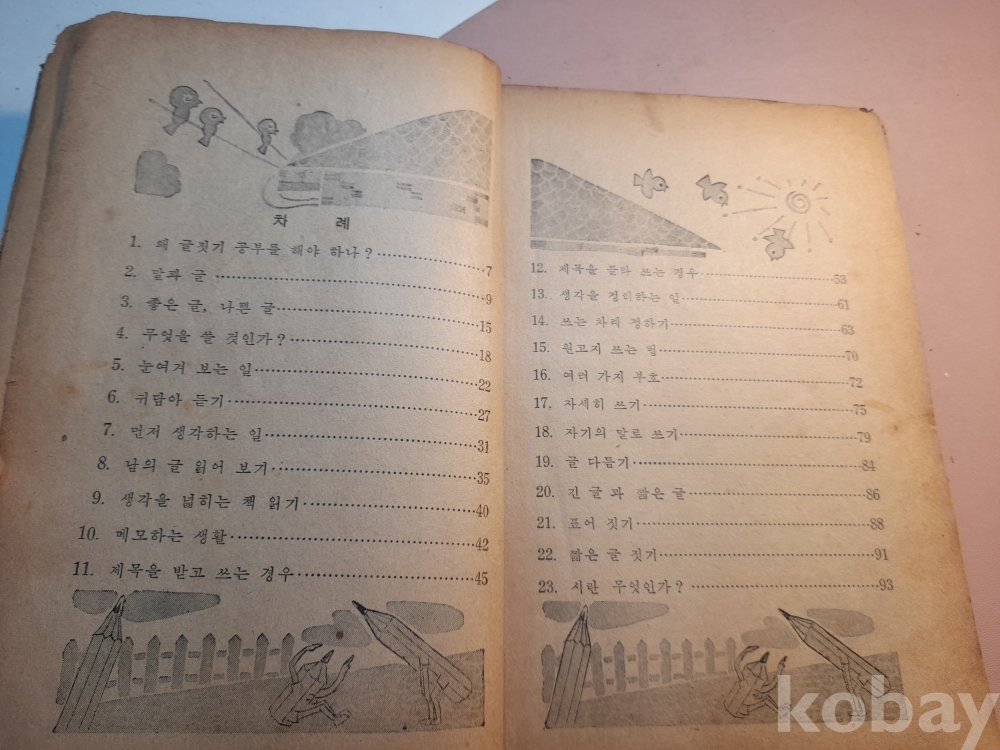 차 례
1. 왜 글짓기 공부를 해야 하나?……………7
2. 말과 글……………9
3. 좋은 글, 나쁜 글……………15
4. 무엇을 쓸 것인가?……………18
5. 눈여겨 보는 일……………22
6. 귀담아 듣기……………27
7. 먼저 생각하는 일……………31
8. 남의 글 읽어 보기……………35
9. 생각을 넓히는 책 읽기……………40
10. 메모하는 생활……………42
11. 제목을 받고 쓰는 경우……………45
12. 제목을 골라 쓰는 경우……………53
13. 생각을 정리하는 일……………61
14. 쓰는 차례 정하기……………63
15. 원고지 쓰는 법……………70
16. 여러 가지 부호……………72
17. 자세히 쓰기……………75
18. 자기의 말로 쓰기……………79
19. 글 다듬기……………84
20. 긴 글과 짧은 글……………86
21. 표어 짓기……………88
22. 짧은 글 짓기……………91
23. 시란 무엇인가?……………93
kobay